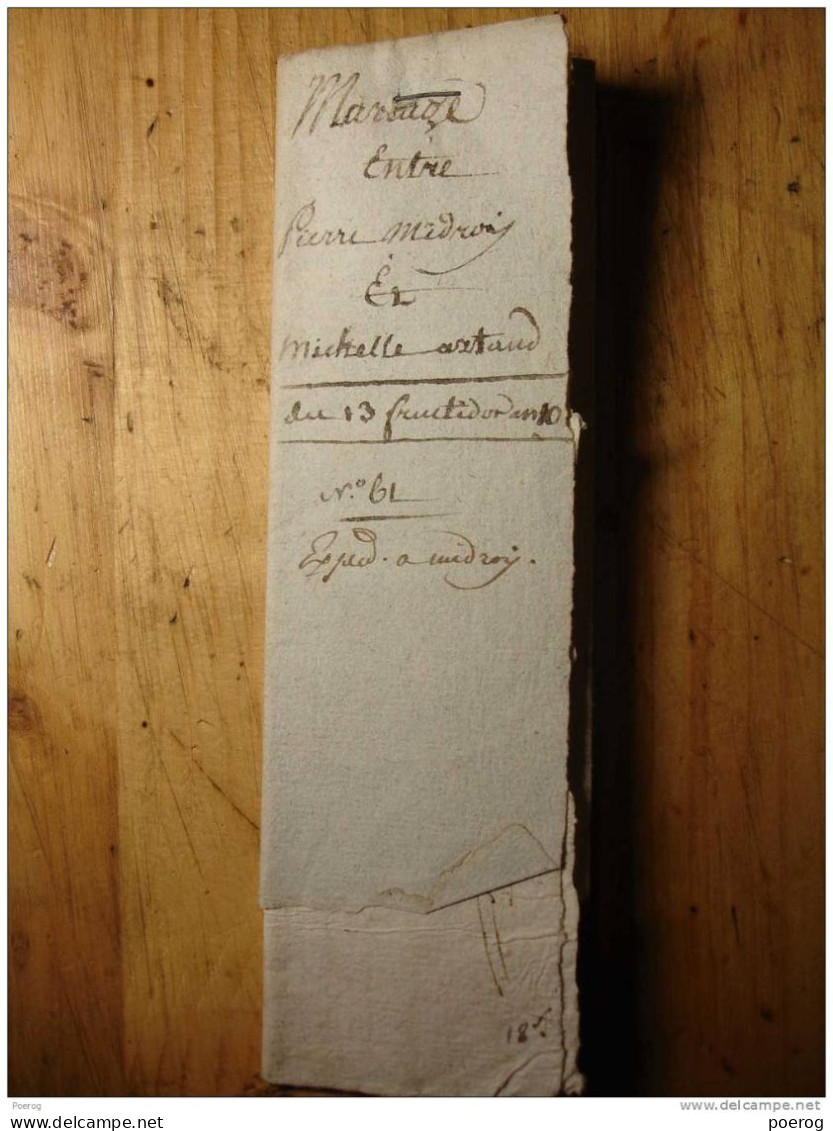 Mariage
Entre
Pierre Médroy
Et
Michelle artaud
du 13 fructidor an 10
N.º 61
Exped. a médroy.
18
Poerog
delcampe.net
poerog